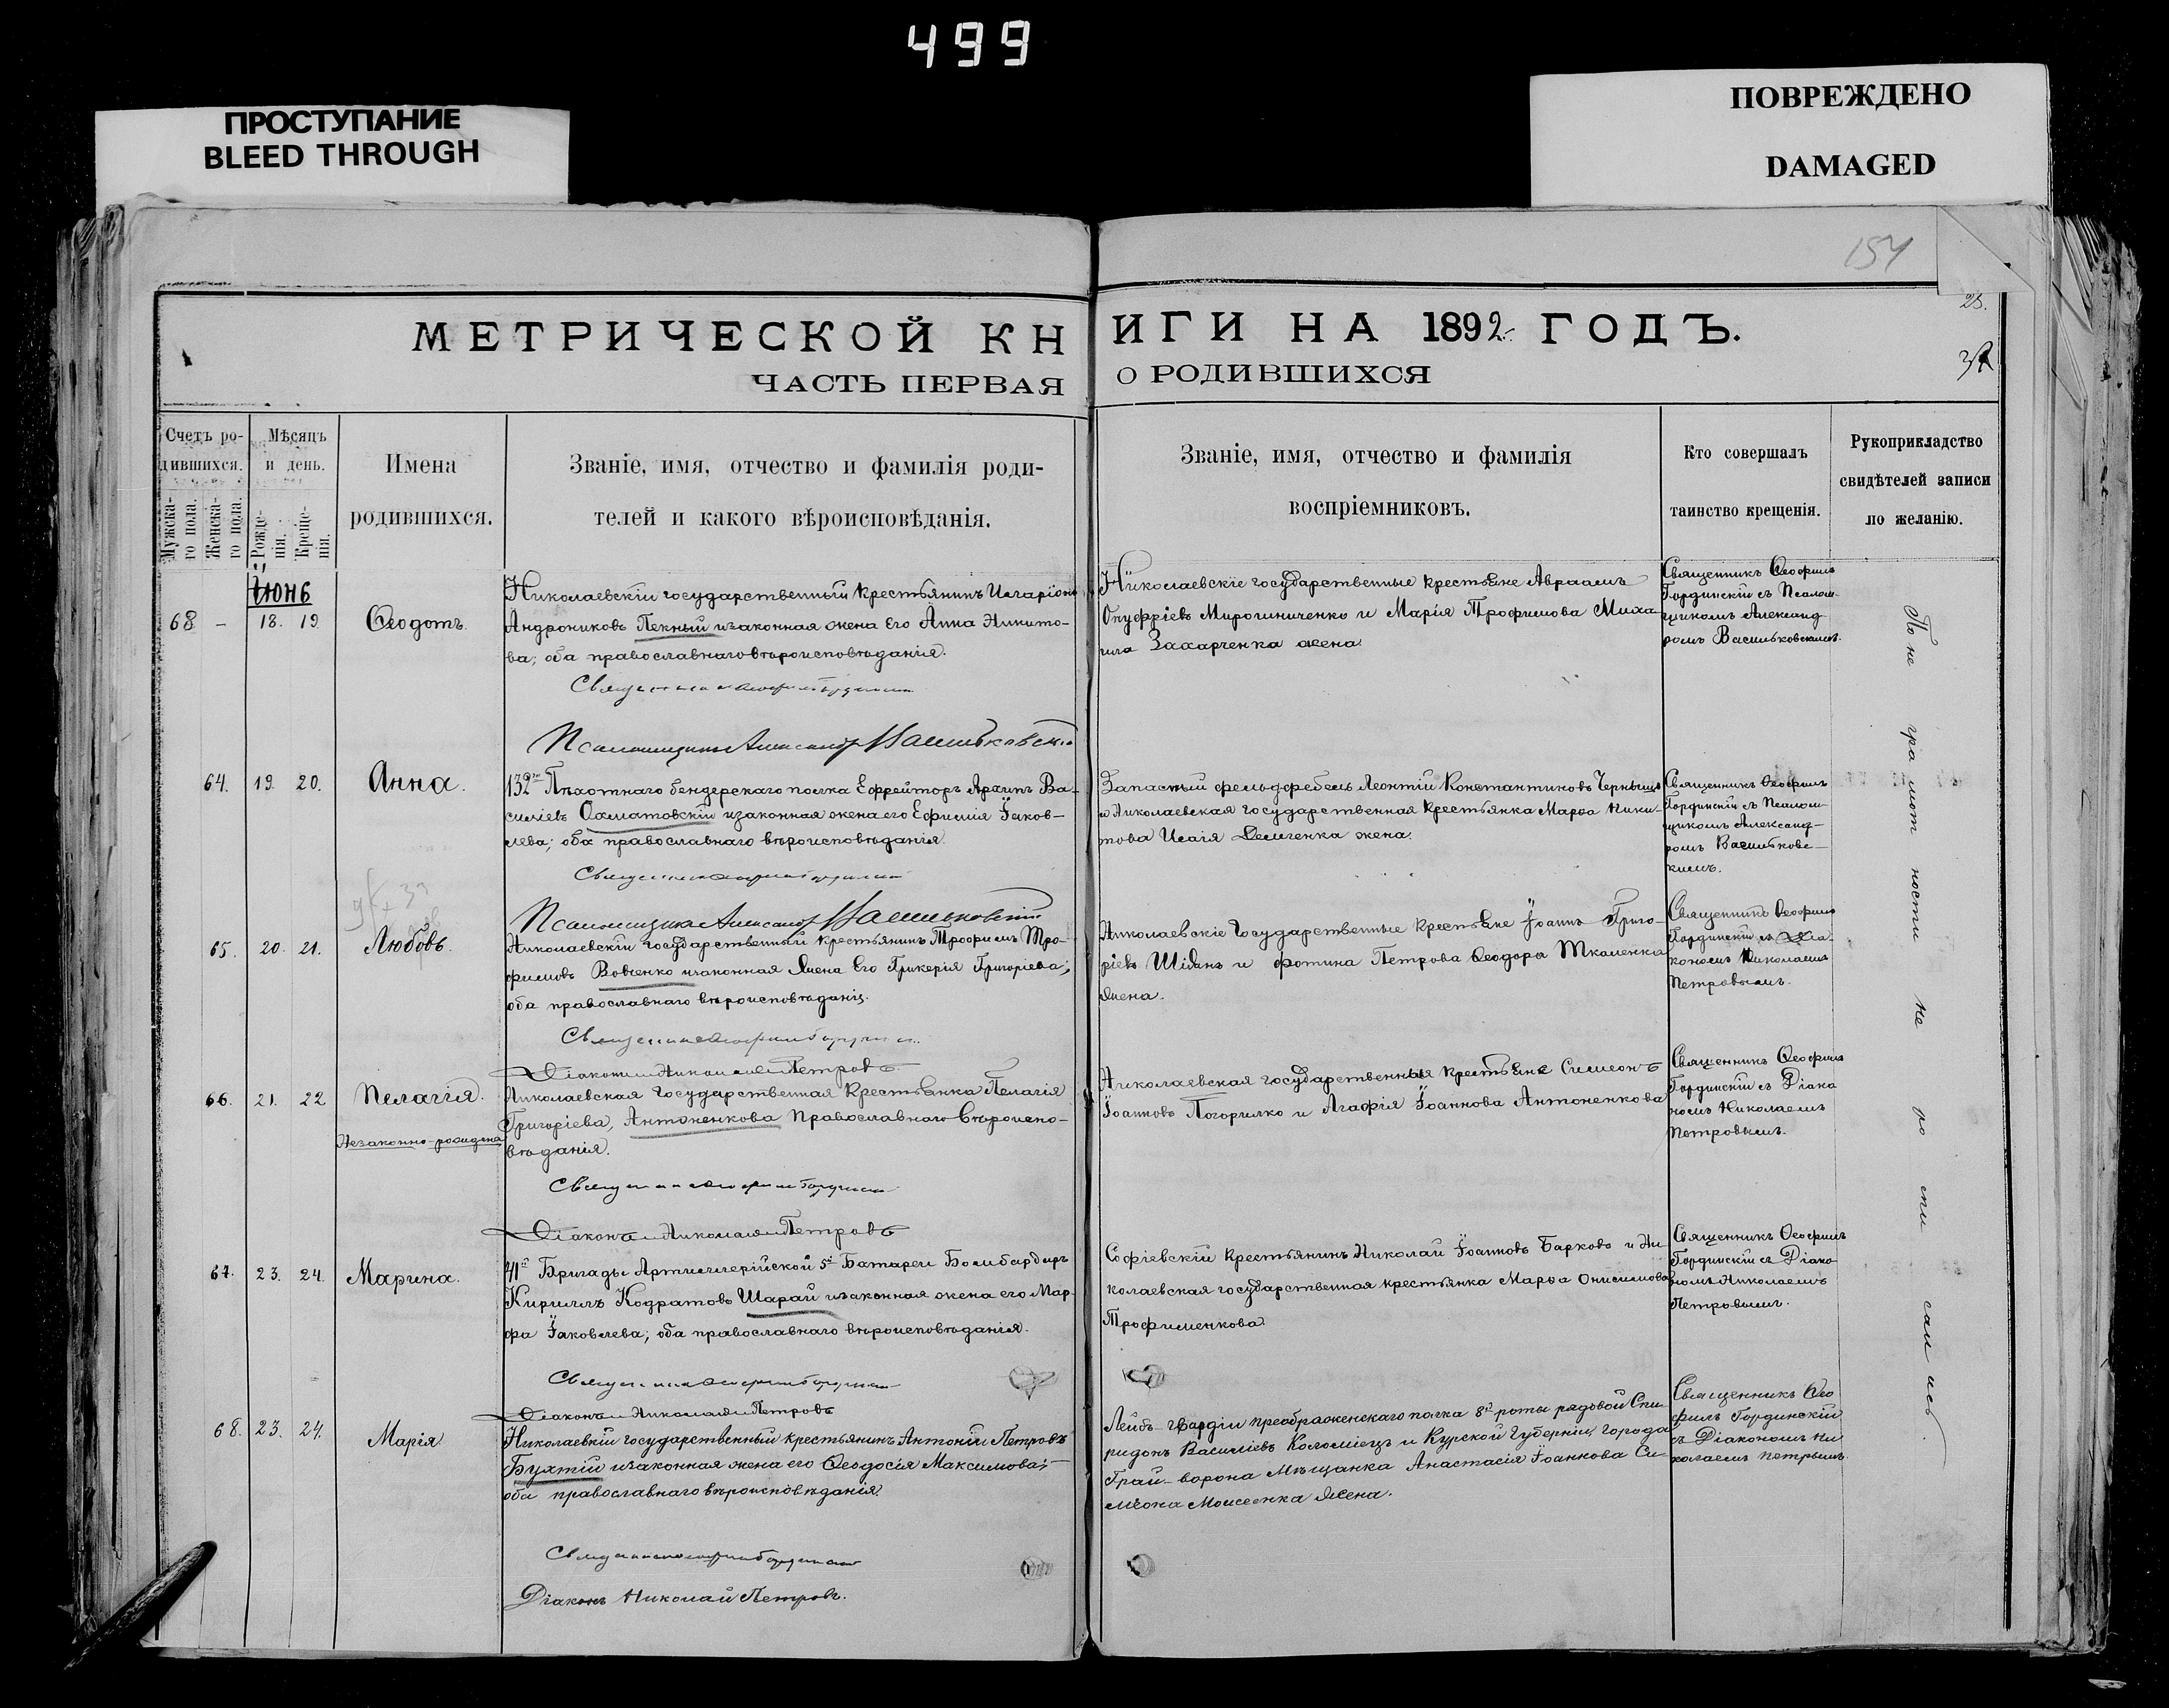 499
ПРОСТУПАНИЕ
BLEED THROUGH
ПОВРЕЖДЕНО
DAMAGED
154
28.
МЕТРИЧЕСКОЙ КНИГИ НА 1892 ГОДЪ.
ЧАСТЬ ПЕРВАЯ О РОДИВШИХСЯ
Счетъ ро-
дившихся.
Мужска-
го пола.
Женска-
го пола.
Мѣсяцъ
и день.
Рожде-
нія.
Креще-
нія.
Имена
родившихся.
Званіе, имя, отчество и фамилія роди-
телей и какого вѣроисповѣданія.
Званіе, имя, отчество и фамилія
воспріемниковъ.
Кто совершалъ
таинство крещенія.
Рукоприкладство
свидѣтелей записи
по желанію.
Іюнь
68 – 18. 19.
Ѳеодотъ.
Николаевскій государственный крестьянинъ Иларіонъ
Андрониковъ Пекный и законная жена его Анна Никито-
ва; оба православнаго вѣроисповѣданія.
Николаевскіе государственные крестьяне Авраамъ
Онуфріевъ Мирошниченко и Марія Трофимова Миха-
ила Захарченка жена.
Священникъ Ѳеофилъ
Гординскій съ Псалом-
щикомъ Александ-
ромъ Васильковскимъ.
Псаломщикъ Александръ Васильковскій
64. 19. 20.
Анна.
132го Пѣхотнаго бендерскаго полка Ефрейторъ Архипъ Ва-
силіевъ Охматовскій и законная жена его Ефимія Іаков-
лева; оба православнаго вѣроисповѣданія.
Запасный фельдфебель Леонтій Константиновъ Чернышъ
и Николаевская государственная крестьянка Марѳа Ники-
това Исаія Демченка жена.
Священникъ Ѳеофилъ
Гординскій съ Псалом-
щикомъ Александ-
ромъ Васильковс-
кимъ.
Псаломщикъ Александръ Васильковскій
65. 20. 21.
Любовь.
Николаевскій государственный крестьянинъ Трофимъ Тро-
фимовъ Вовченко и законная жена Его Гликерія Григоріева;
оба православнаго вѣроисповѣданія.
Николаевскіе Государственные крестьяне Іоаннъ Григо-
ріевъ Шиянъ и Фотина Петрова Ѳеодора Ткаленка
жена.
Священникъ Ѳеофилъ
Гординскій съ Діа-
кономъ Николаемъ
Петровымъ.
Діаконъ Николай Петровъ
66. 21. 22
Пелагія.
Незаконно-рождена
Николаевская Государственная Крестьянка Пелагія
Григоріева, Антоненкова Православнаго Вѣроиспо-
вѣданія.
Николаевская государственныя крестьяне Симеонъ
Іоанновъ Погорилко и Агафія Іоаннова Антоненкова
Священникъ Ѳеофилъ
Гординскій съ Діако
номъ Николаемъ
Петровымъ.
Діаконъ Николай Петровъ
67. 23. 24.
Марина.
41й Бригады Артиллерійской 5й Батареи Бомбардиръ
Кириллъ Кодратовъ Шарай и законная жена его Мар-
фа Іаковлева; оба православнаго вѣроисповѣданія.
Софіевскій крестьянинъ Николай Іоанновъ Барковъ и Ни-
колаевская государственная крестьянка Марѳа Онисимова
Трофименкова.
Священникъ Ѳеофилъ
Гординскій съ Діако
номъ Николаемъ
Петровымъ.
Діаконъ Николай Петровъ
68. 23. 24.
Марія
Николаевкій государственный крестьянинъ Антоній Петровъ
Бухтій и законная жена его Ѳеодосія Максимова;
оба православнаго вѣроисповѣданія.
Лейбъ-гвардіи преображенскаго полка 8й роты рядовой Спи-
ридонъ Василіевъ Коломіецъ и Курской Губерніи, города
Грай-ворона Мѣщанка Анастасія Іоаннова Си-
меона Моисеенка жена.
Священникъ Ѳео
филъ Гординскій
съ Діакономъ Ни
колаемъ Петрвымъ.
Діаконъ Николай Петровъ.
По не гра мот ности не ро сти сались.